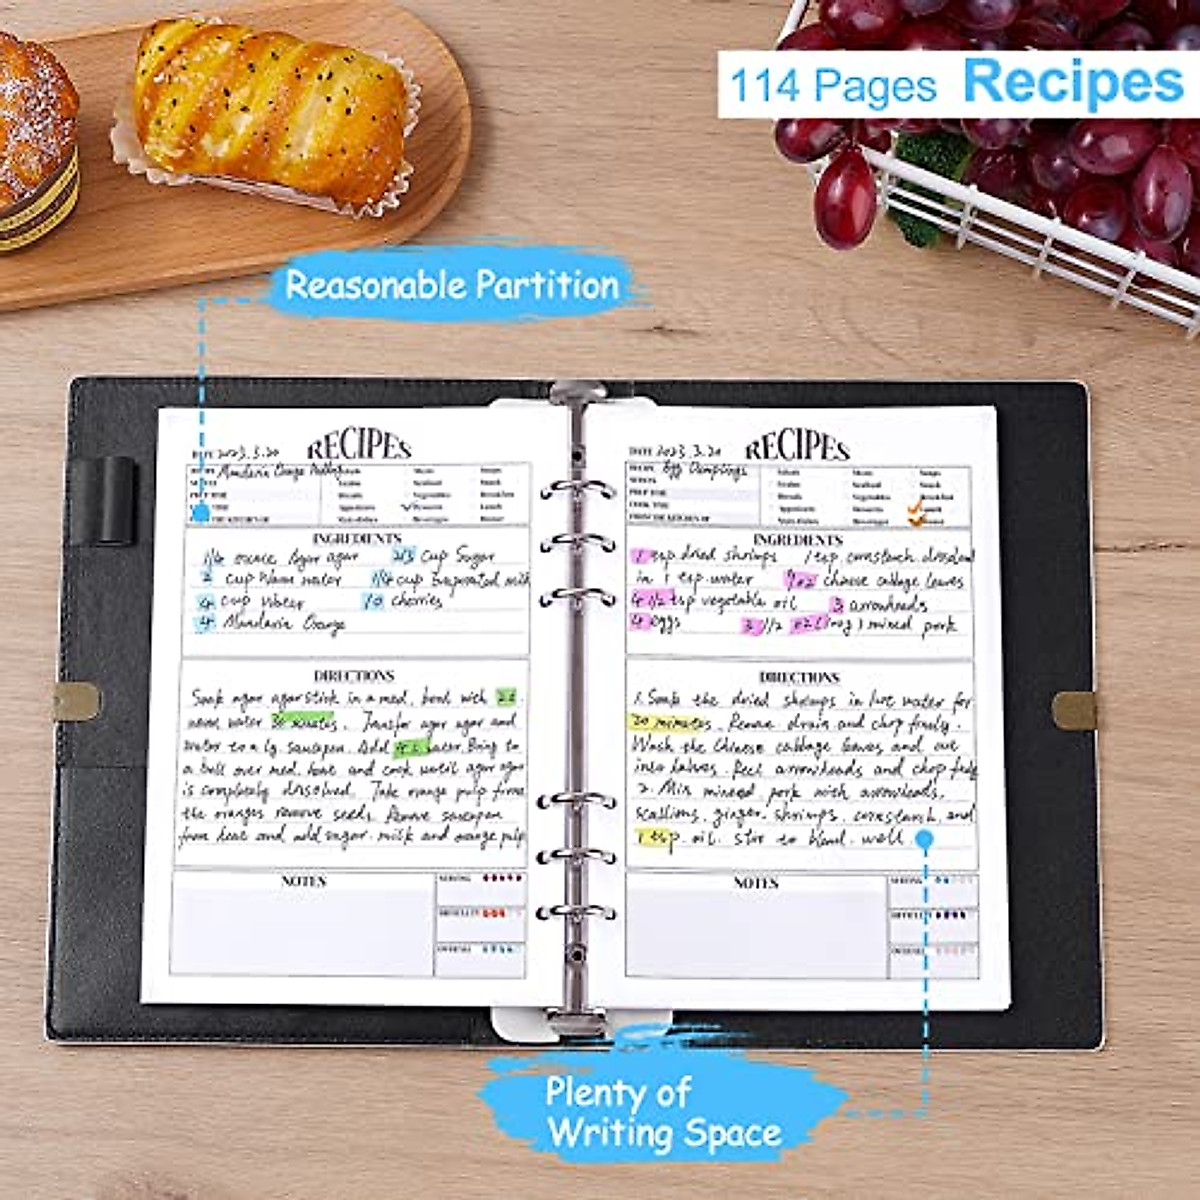 114 Pages Recipes
Reasonable Partition
RECIPES
DATE 2023.3.20
Mandarin Orange Pudding
PREP TIME
TIME
THE KITCHEN OF
Salads Meats Soups
Grains Seafood Snack
Breads Vegetables Breakfast
Appetizers Desserts Lunch
Side dishes Beverages Dinner
INGREDIENTS
1/4 ounce Agar agar 2/3 cup Sugar
2 cup Warm water 1/4 cup Evaporated milk
4 cup Water 10 cherries
4 Mandarin Orange
DIRECTIONS
Soak agar agar stick in a med. bowl with 2 c.
warm water 30 minutes. Transfer agar agar and
water to a lg. saucepan. Add 4 c. water. Bring to
a boil over med. heat and cook until agar agar
is completely dissolved. Take orange pulp from
the oranges remove seeds. Remove saucepan
from heat and add sugar. milk and orange pulp
NOTES
SERVING
DIFFICULTY
OVERALL
RECIPES
DATE 2023.3.20
RECIPE Egg Dumplings
SERVES
PREP TIME
COOK TIME
FROM THE KITCHEN OF
Salads Meats Soups
Grains Seafood Snack
Breads Vegetables Breakfast
Appetizers Desserts Lunch
Side dishes Beverages Dinner
INGREDIENTS
1 tsp dried shrimps 1 tsp. cornstarch dissolved
in 1 tsp water 7 oz chinese cabbage leaves
4 1/2 tsp vegetable oil 3 arrowheads
4 eggs 3 1/2 oz minced pork
DIRECTIONS
1. Soak the dried shrimps in hot water for
20 minutes. Remove. drain and chop finely.
Wash the Chinese cabbage leaves and cut
into halves. Peel arrowheads and chop finely
2. Mix minced pork with arrowheads,
scallions, ginger, shrimps. cornstarch, and
1 tsp. oil. stir to blend well.
NOTES
SERVING
DIFFICULTY
OVERALL
Plenty of
Writing Space